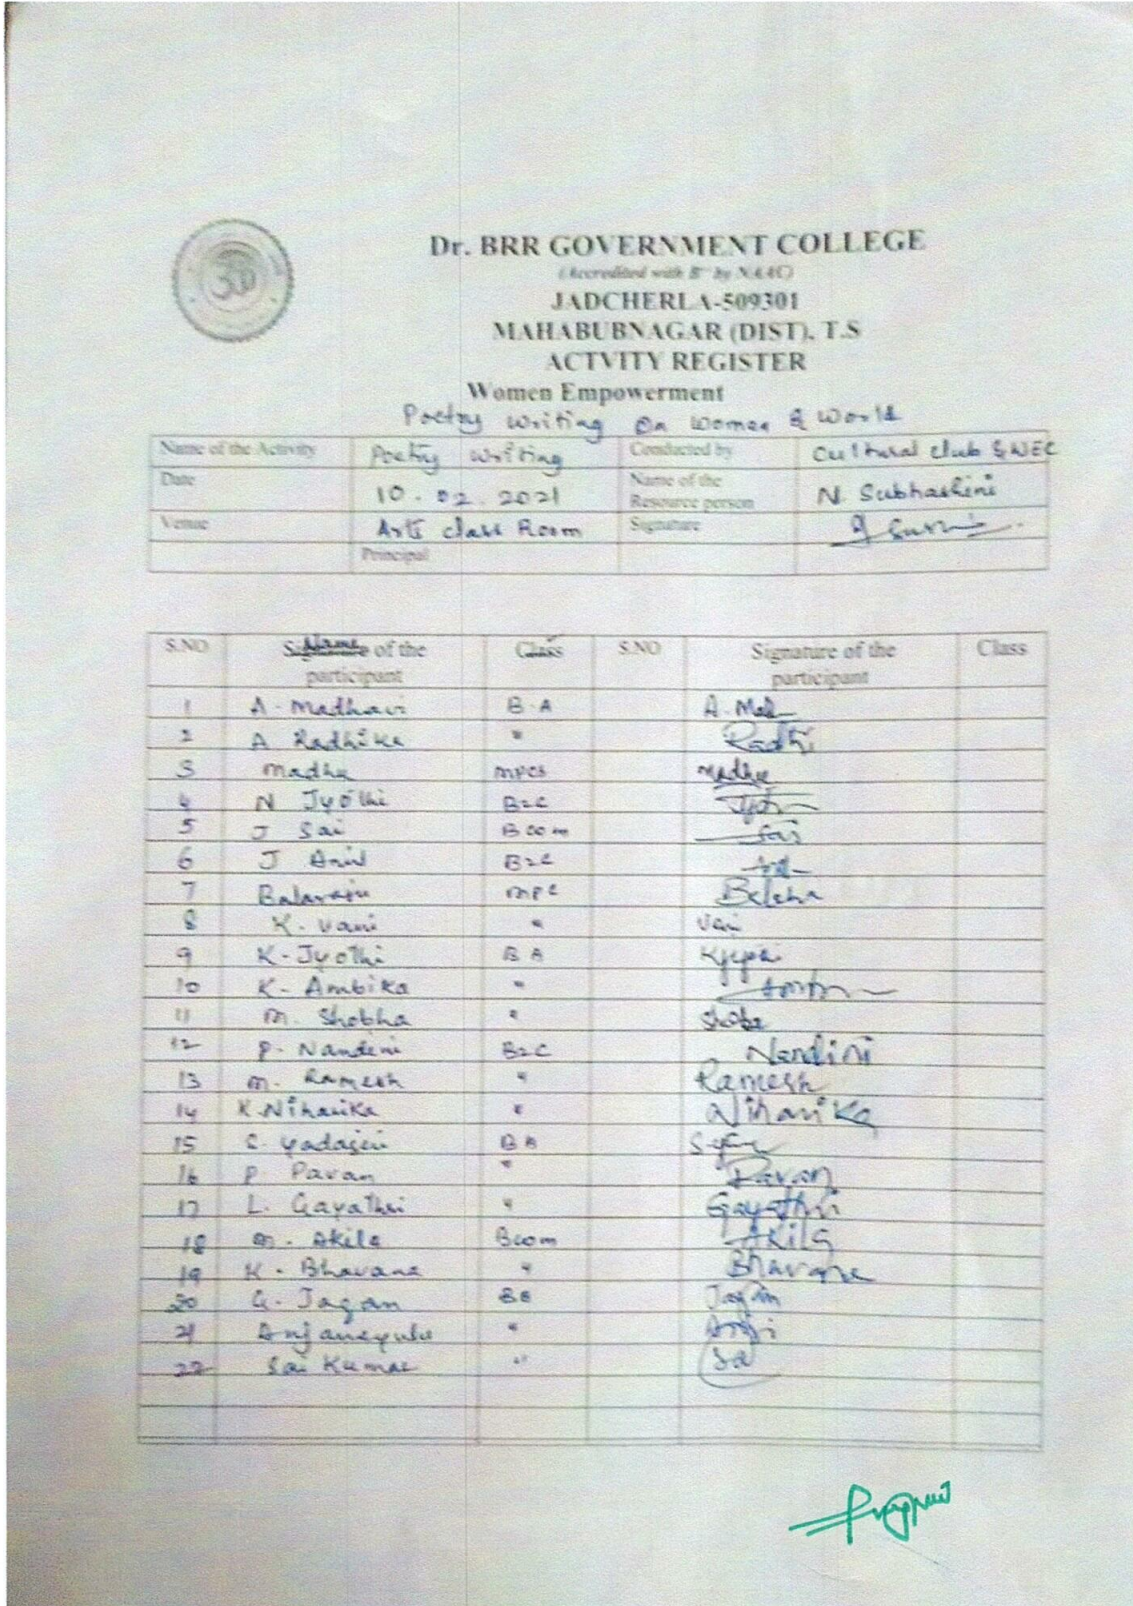 Dr. BRR GOVERNMENT COLLEGE
(Accredited with B++ by NAAC)
JADCHERLA-509301
MAHABUBNAGAR (DIST), T.S
ACTVITY REGISTER
Women Empowerment
Poetry Writing On Women & World
Name of the Activity Poetry Writing Conducted by Cultural club & WEC
Date 10.02.2021 Name of the Resource person N. Subhashini
Venue Arts class Room Signature
Principal
S.NO Name of the participant Class S.NO Signature of the participant Class
1 A. Madhavi B.A
2 A Radhika " Radhi
3 Madhu MPCS Madhu
4 N Jyothi BZC
5 J Sai Bcom Sai
6 J Anil BZC
7 Balaraju MPC
8 K. Vani " Vani
9 K. Jyothi BA
10 K. Ambika "
11 M. Shobha "
12 P. Nandini BZC Nandini
13 M. Ramesh " Ramesh
14 K. Niharika " Niharika
15 S. Yadagiri BA
16 P. Pavan " Pavan
17 L. Gayathri " Gayathri
18 M. Akila Bcom Akila
19 K. Bhavana " Bhavana
20 G. Jagan Jagan
21 Anjaneyulu " Anji
22 Sai Kumar " Sai